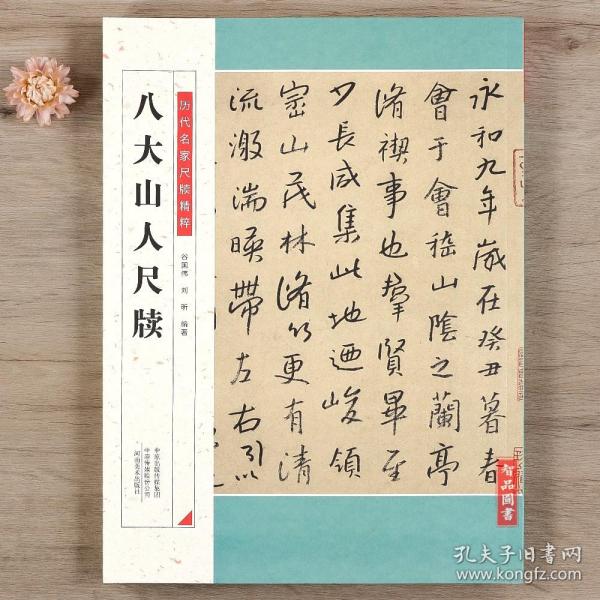 历代名家尺牍精粹
八大山人尺牍
谷国伟 刘昕 编著
中原出版传媒集团
中原传媒股份公司
河南美术出版社
永和九年歲在癸丑暮春
會于會嵇山陰之蘭亭
脩禊事也羣賢畢至
少長咸集此地迺峻領
崇山茂林脩竹更有清
流激湍暎帶左右引以
智品圖書
孔夫子旧書网
www.kongfz.com